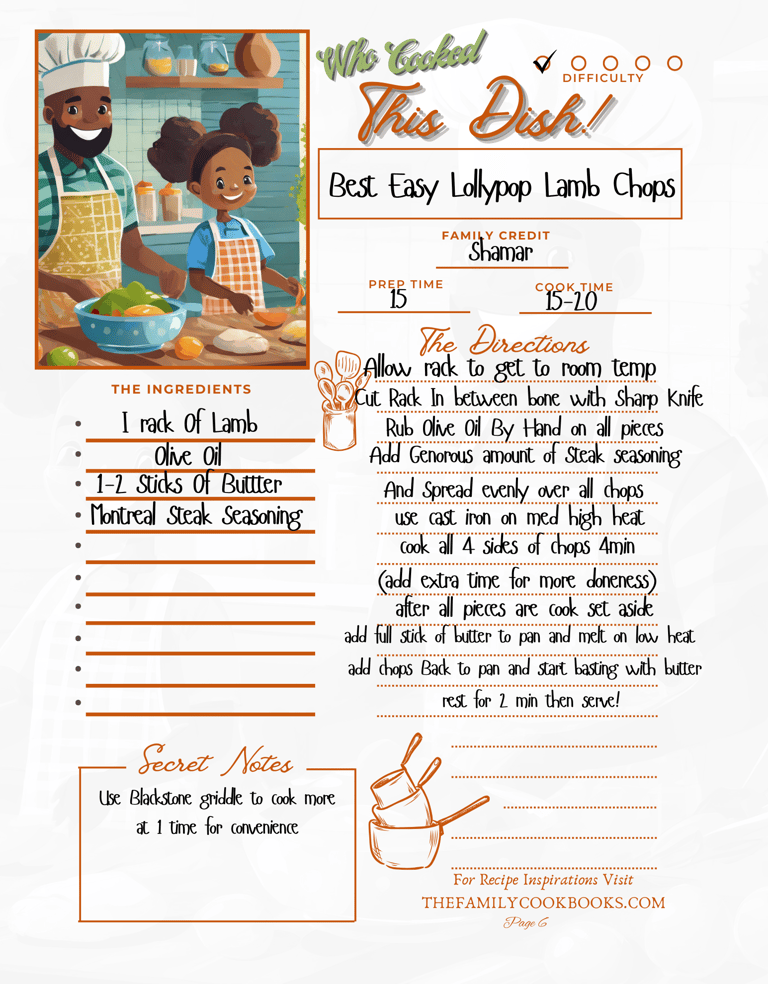 Who Cooked
This Dish!
DIFFICULTY
Best Easy Lollypop Lamb Chops
FAMILY CREDIT
Shamar
PREP TIME
15
COOK TIME
15-20
THE INGREDIENTS
1 rack Of Lamb
Olive Oil
1-2 Sticks Of Buttter
Montreal Steak Seasoning
The Directions
Allow rack to get to room temp
Cut Rack In between bone with Sharp Knife
Rub Olive Oil By Hand on all pieces
Add Genorous amount of Steak seasoning
And Spread evenly over all chops
use cast iron on med high heat
cook all 4 sides of chops 4min
(add extra time for more doneness)
after all pieces are cook set aside
add full stick of butter to pan and melt on low heat
add chops Back to pan and start basting with butter
rest for 2 min then serve!
Secret Notes
Use Blackstone griddle to cook more
at 1 time for convenience
For Recipe Inspirations Visit
THEFAMILYCOOKBOOKS.COM
Page 6